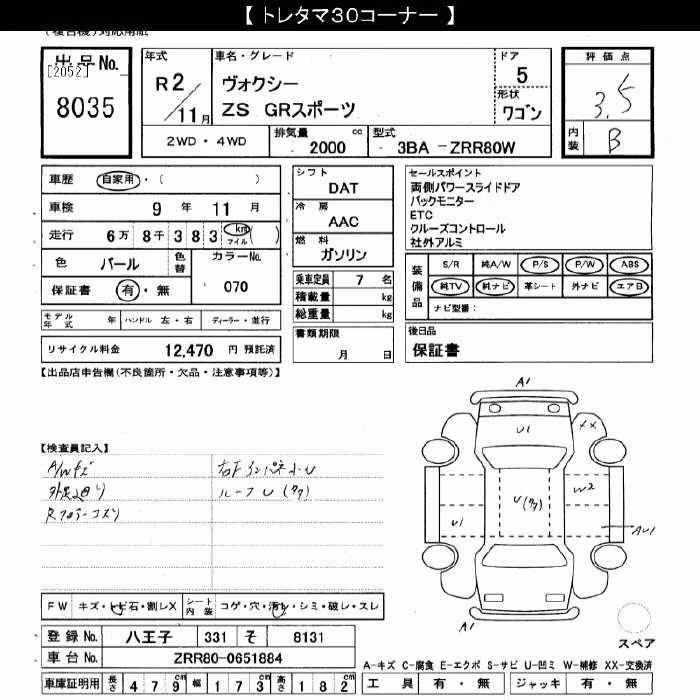 【 トレタマ30コーナー 】
(複合機)対応用紙
出品No.
[2052]
8035
年式
R 2/11月
車名・グレード
ヴォクシー
ZS GRスポーツ
ドア
5
形状
ワゴン
評価点
3.5
内装
B
2WD・4WD
排気量 2000 cc
型式 3BA - ZRR80W
車歴 自家用・( )
車検 9 年 11 月
走行 6万 8千 3 8 3 km マイル ( )
色 パール
色替
カラーNo.
070
保証書 有・無
モデル年式 年
ハンドル 左・右
ディーラー・並行
リサイクル料金 12,470 円 預託済
シフト
DAT
冷房
AAC
燃料
ガソリン
乗車定員 7 名
積載量 kg
総重量 kg
書類期限
月 日
セールスポイント
両側パワースライドドア
バックモニター
ETC
クルーズコントロール
社外アルミ
装備品
S/R 純A/W P/S P/W ABS
純TV 純ナビ 革シート 外ナビ エアB
ナビ型番:
後日品
保証書
【出品店申告欄(不良箇所・欠品・注意事項等)】
【検査員記入】
A/Wキズ
外装廻り
Rフロアーコスリ
右下インパネ小U
ルーフU(タタ)
A1
U1
XX
U(タタ)
W2
U1
AU1
A1
スペア
FW キズ・トビ石・割レX
シート内装 コゲ・穴・汚レ・シミ・破レ・スレ
登録No. 八王子 331 そ 8131
車台No. ZRR80-0651884
車庫証明用 長さ 4 7 9 cm 幅 1 7 3 cm 高さ 1 8 2 cm
A-キズ C-腐食 E-エクボ S-サビ U-凹ミ W-補修 XX-交換済
工具 有・無 ジャッキ 有・無